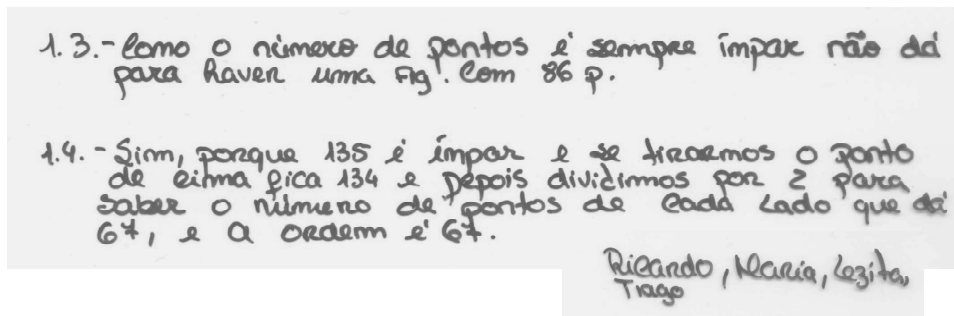 1.3.- Como o número de pontos é sempre ímpar não dá
para haver uma fig. Com 86 p.
1.4. - Sim, porque 135 é ímpar e se tirarmos o ponto
de cima fica 134 e depois dividimos por 2 para
saber o número de pontos de cada lado que dá
67, e a ordem é 67.
Ricardo, Maria, Lezita,
Tiago